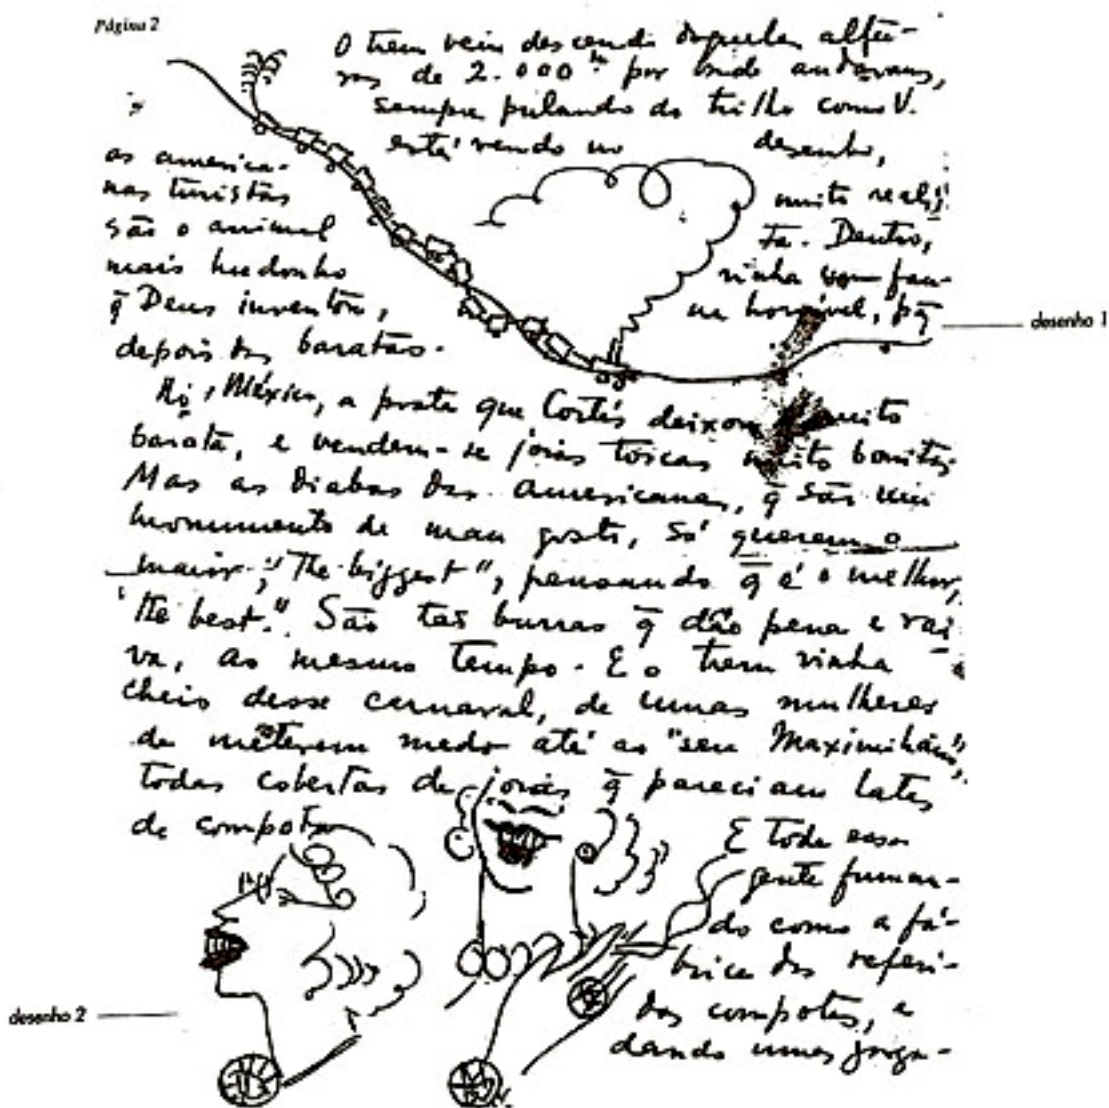 Página 2
O trem vein descendo daquelas altu-
ras de 2.000 m por onde andavam,
sempre pulando do trilho como V.
está vendo no desenho,
muito realis
ta. Dentro,
vinha uma fau-
na horrível, pq̄
desenho 1
as america-
nas turistas
são o animal
mais hediondo
q̄ Deus inventou,
depois das baratas.
México, a prata que Cortés deixou muito
barata, e vendem-se joias toscas muito bonitas.
Mas as diabas das americanas, q̄ são um
monumento de mau gosto, só querem o
maior; "The biggest", pensando q̄ é o melhor,
"the best." São tão burras q̄ dão pena e rai
va, ao mesmo tempo. E o trem vinha
cheio desse carnaval, de umas mulheres
de meterem medo até ao "seu Maximiliano",
todas cobertas de joias q̄ pareciam latas
de compota
E toda essa
gente fuman-
do como a fá-
brica das referi-
das compotas, e
dando umas garga-
desenho 2